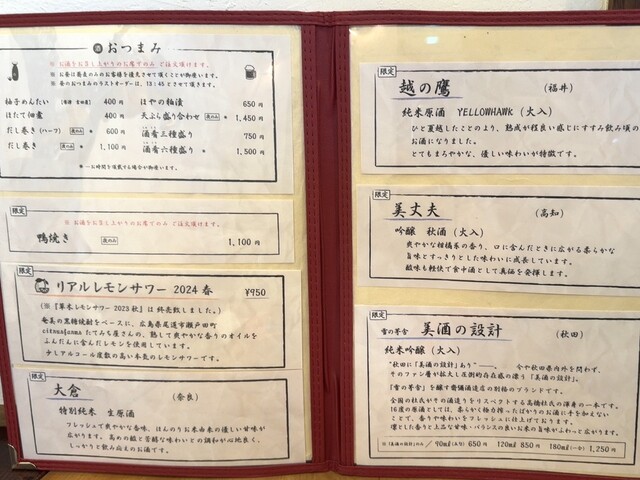 おつまみ
※ お酒をお召し上がりのお席でのみ ご注文頂けます。
柚子めんたい 400円
ほたて佃煮 400円
だし巻き（ハーフ） 夜のみ * 600円
だし巻き 夜のみ * 1,100円
ほやの粕漬 650円
天ぷら盛り合わせ 夜のみ * 1,450円
酒肴三種盛り 750円
酒肴六種盛り * 1,500円
限定
※ お酒をお召し上がりのお席でのみ ご注文頂けます。
鴨焼き 夜のみ 1,100円
限定
リアルレモンサワー 2024 春 ¥950
（※『草木レモンサワー2023秋』は終売致しました。）
奄美の黒糖焼酎をベースに、広島県尾道市瀬戸田町
citrusfarms たてみち屋さんの、熟して爽やかな香りのオイルを
ふんだんに含んだレモンを使用しています。
少しアルコール度数の高い本気のレモンサワーです。
限定
大倉 （奈良）
特別純米 生原酒
フレッシュで爽やかな香味、ほんのりお米由来の優しい甘味が
広がります。高めの酸と苦味な味わいとの調和が心地良く、
しっかりと飲み応えのお酒です。
限定
越の鷹 （福井）
純米原酒 YELLOWHAWK（火入）
ひと夏越したことのより、熟成が程良い感じにすすみ飲み頃の
お酒になりました。
とてもまろやかな、優しい味わいが特徴です。
限定
美丈夫 （高知）
吟醸 秋酒（火入）
爽やかな柑橘系の香り、口に含んだときに広がる柔らかな
旨味とすっきりとした味わいに成長しています。
酸味も軽快で食中酒として真価を発揮します。
限定
雪の茅舎 美酒の設計 （秋田）
純米吟醸（火入）
“秋田に「美酒の設計」あり”――、 今や秋田県内外を問わず、
そのファン層が拡大し圧倒的存在感の漂う「美酒の設計」。
「雪の茅舎」を醸す齋彌酒造店の別格のブランドです。
全国の杜氏がその酒造りをリスペクトする高橋杜氏の渾身の一本です。
16度の原酒としては、柔らかく極力搾ったばかりのお酒に手を加えない
ことで、香りや味わいをフレッシュに仕上げております。
凛とした香りと上品な甘味・バランスの良いお米の旨味がふわっと広がります。
※「美酒の設計」のみ／90ml（お勺）650円 120ml 850円 180ml（一合）1,250円